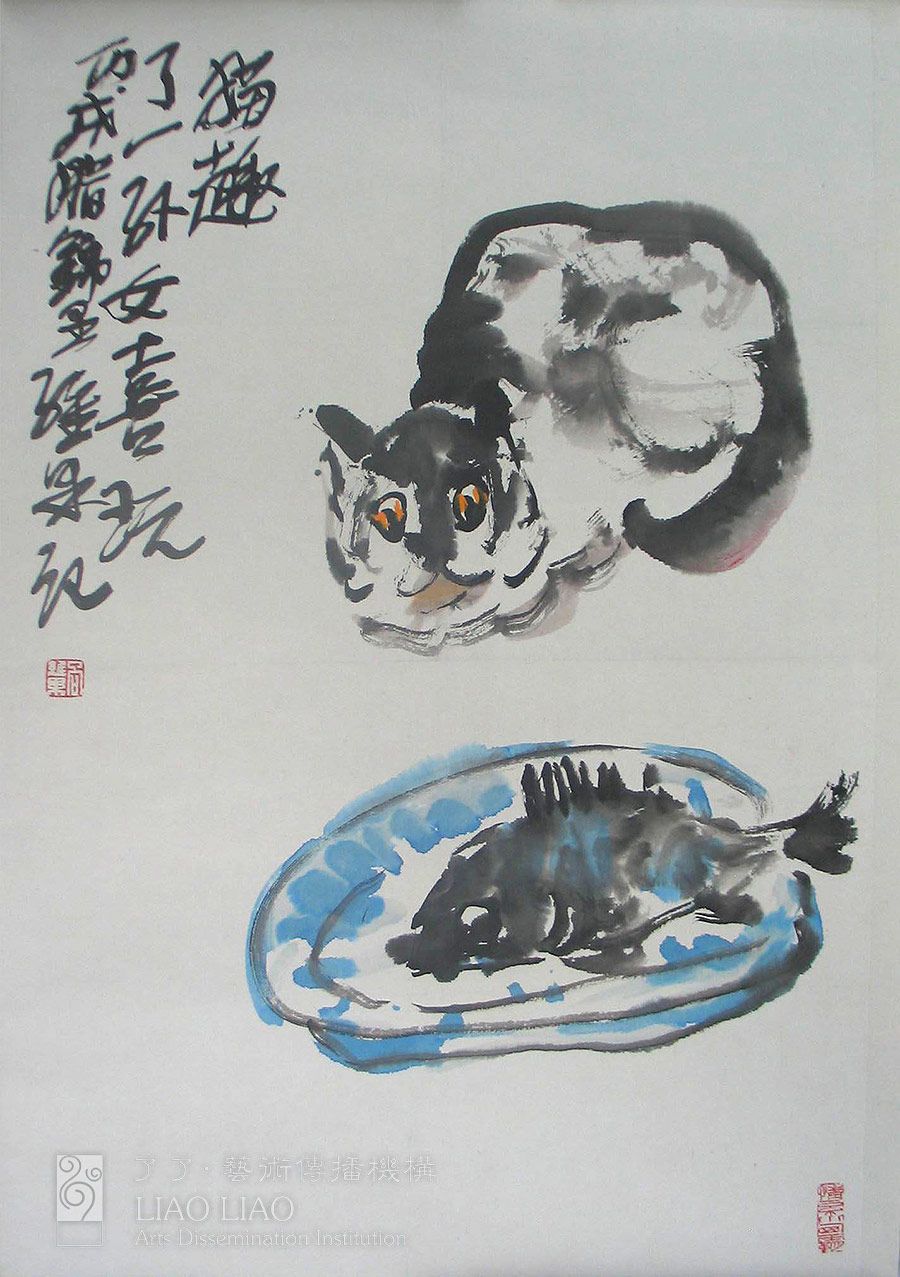 猫趣
了一卧女喜玩
丙戌腊锦里继果记
了了·藝術傳播機構
LIAO LIAO
Arts Dissemination Institution